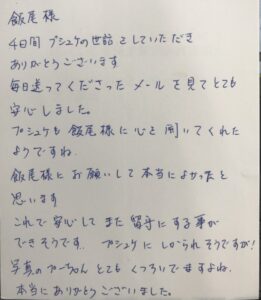 飯尾様
4日間 プシュケの世話をしていただき
ありがとうございます
毎日送ってくださった メールを見てとても
安心しました。
プシュケも 飯尾様に心を開いてくれた
ようですね
飯尾様にお願いして本当によかったと
思います
これで安心してまた留守にする事が
できそうです。 プシュケに しかられそうですが!
写真のプーちゃん とても くつろいでますよね。
本当にありがとうございました。